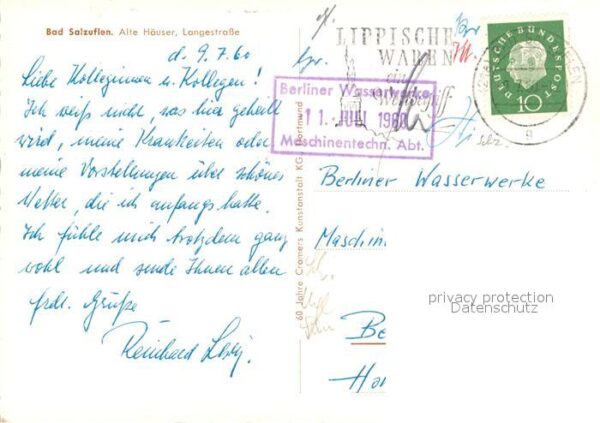 Bad Salzuflen. Alte Häuser, Langestraße
d. 9.7.60
Liebe Kolleginnen u. Kollegen!
Ich weiß nicht, was hier geheilt
wird, meine Krankheiten oder
meine Vorstellungen über schönes
Wetter, die ich anfangs hatte.
Ich fühle mich trotzdem ganz
wohl und sende Ihnen allen
frdl. Grüße
Reinhard
60 Jahre Cramers Kunstanstalt KG, Dortmund
LIPPISCHE
WAREN
ein
Berliner Wasserwerke
11. JULI 1960
Maschinentechn. Abt.
DEUTSCHE BUNDESPOST
10
Berliner Wasserwerke
Maschin
Be
Han
privacy protection
Datenschutz